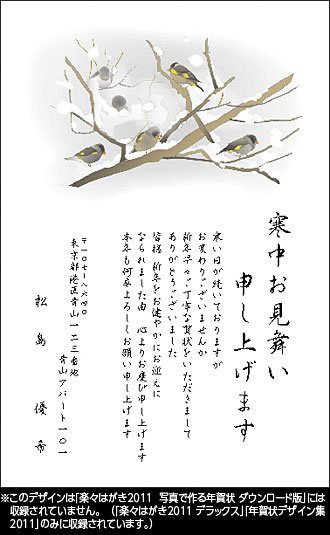 寒中お見舞い
申し上げます
寒い日が続いておりますが
お変わりございませんか
新年早々ご丁寧な賀状をいただきまして
ありがとうございました
皆様 新年をお健やかにお迎えに
なられました由 心よりお慶び申し上げます
本年も何卒よろしくお願い申し上げます
〒107-8640
東京都港区青山一-二三番地
青山アパート101
松島 優希
※このデザインは「楽々はがき2011 写真で作る年賀状 ダウンロード版」には
収録されていません。(「楽々はがき2011 デラックス」「年賀状デザイン集
2011」のみに収録されています。)